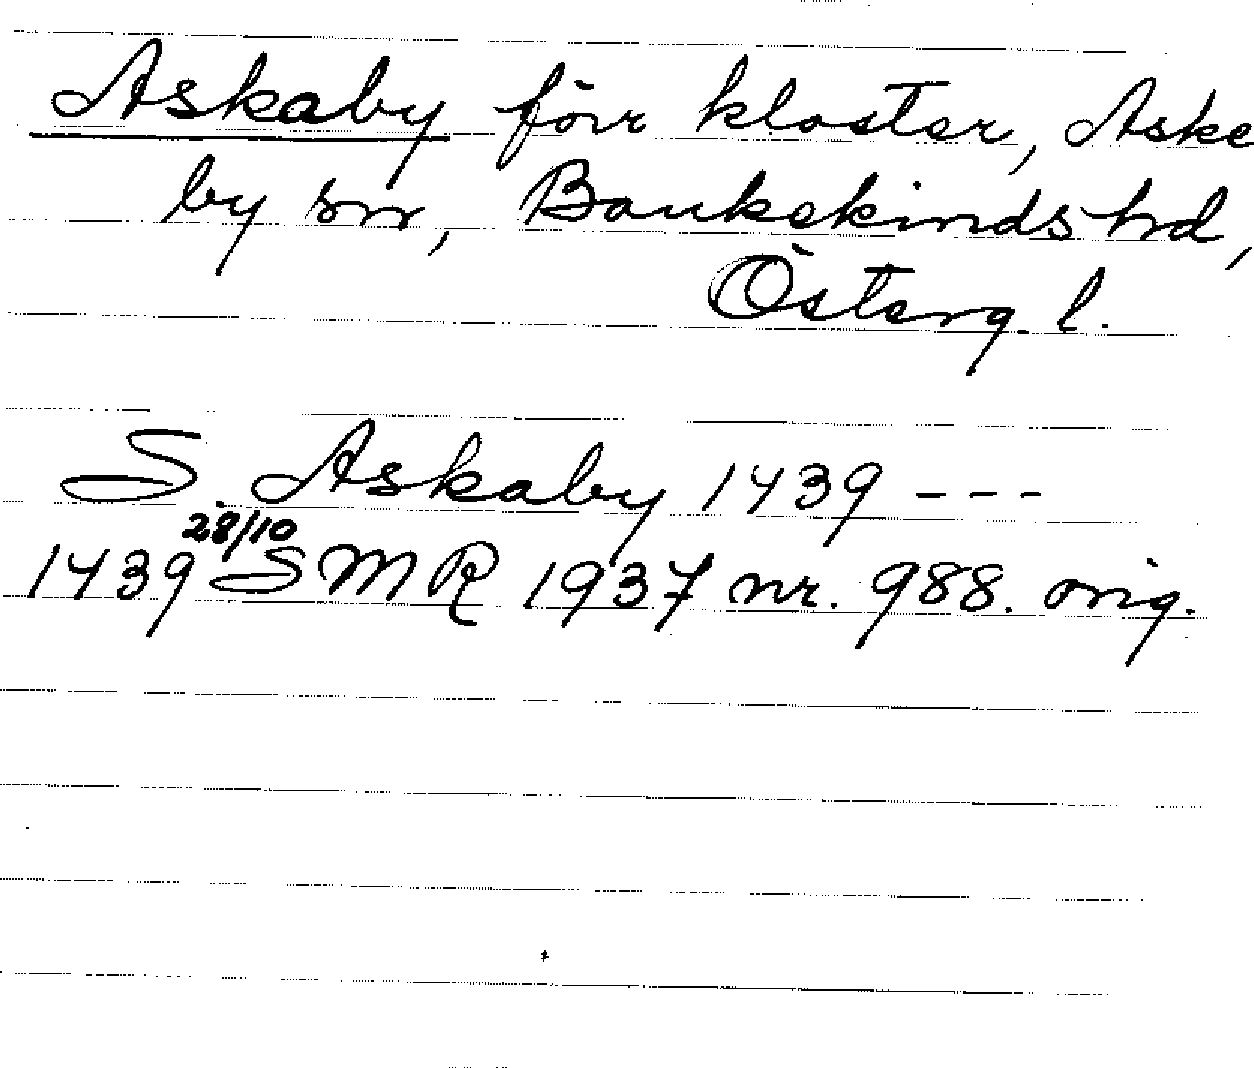 Askaby förr kloster, Aske
by sn, Bankekinds hd,
Österg. l.
S. Askaby 1439 ---
1439 28/10 SMR 1937 nr. 988. orig.